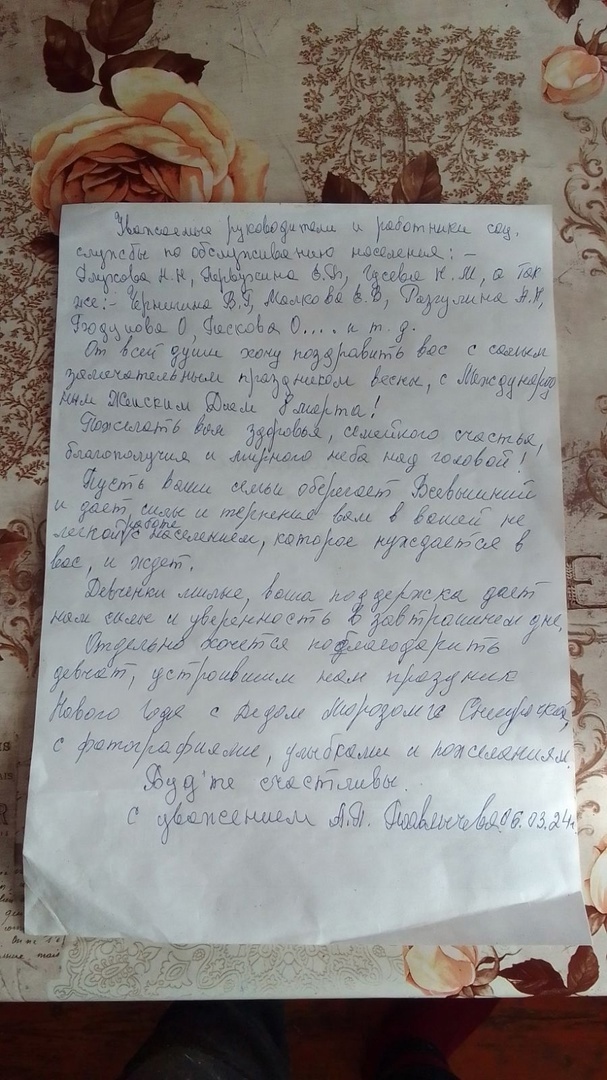 Уважаемые руководители и работники соц.
службы по обслуживанию населения: -
Глухова Н.Н, Первухина Е.В, Гусева Н.М, а так
же:- Чернигина В.Г, Малкова Е.В, Разгулина А.Н,
О, Пескова О.... и т.д.
От всей души хочу поздравить вас с самым
замечательным праздником весны, с Международ
ным Женским Днем 8 марта!
Пожелать вам здоровья, семейного счастья,
благополучия и мирного неба над головой!
Пусть ваши семьи оберегает Всевышний
и дает силы и терпения вам в вашей не
легкой работе с населением, которое нуждается в
вас, и ждет.
Девченки милые, ваша поддержка дает
нам силы и уверенность в завтрашнем дне.
Отдельно хочется поблагодарить
девчат, устроившим нам праздник
Нового Года с Дедом Морозом и Снегурочкой,
с фотографиями, улыбками и пожеланиям.
Будьте счастливы.
С уважением А.П. 06.03.24г.